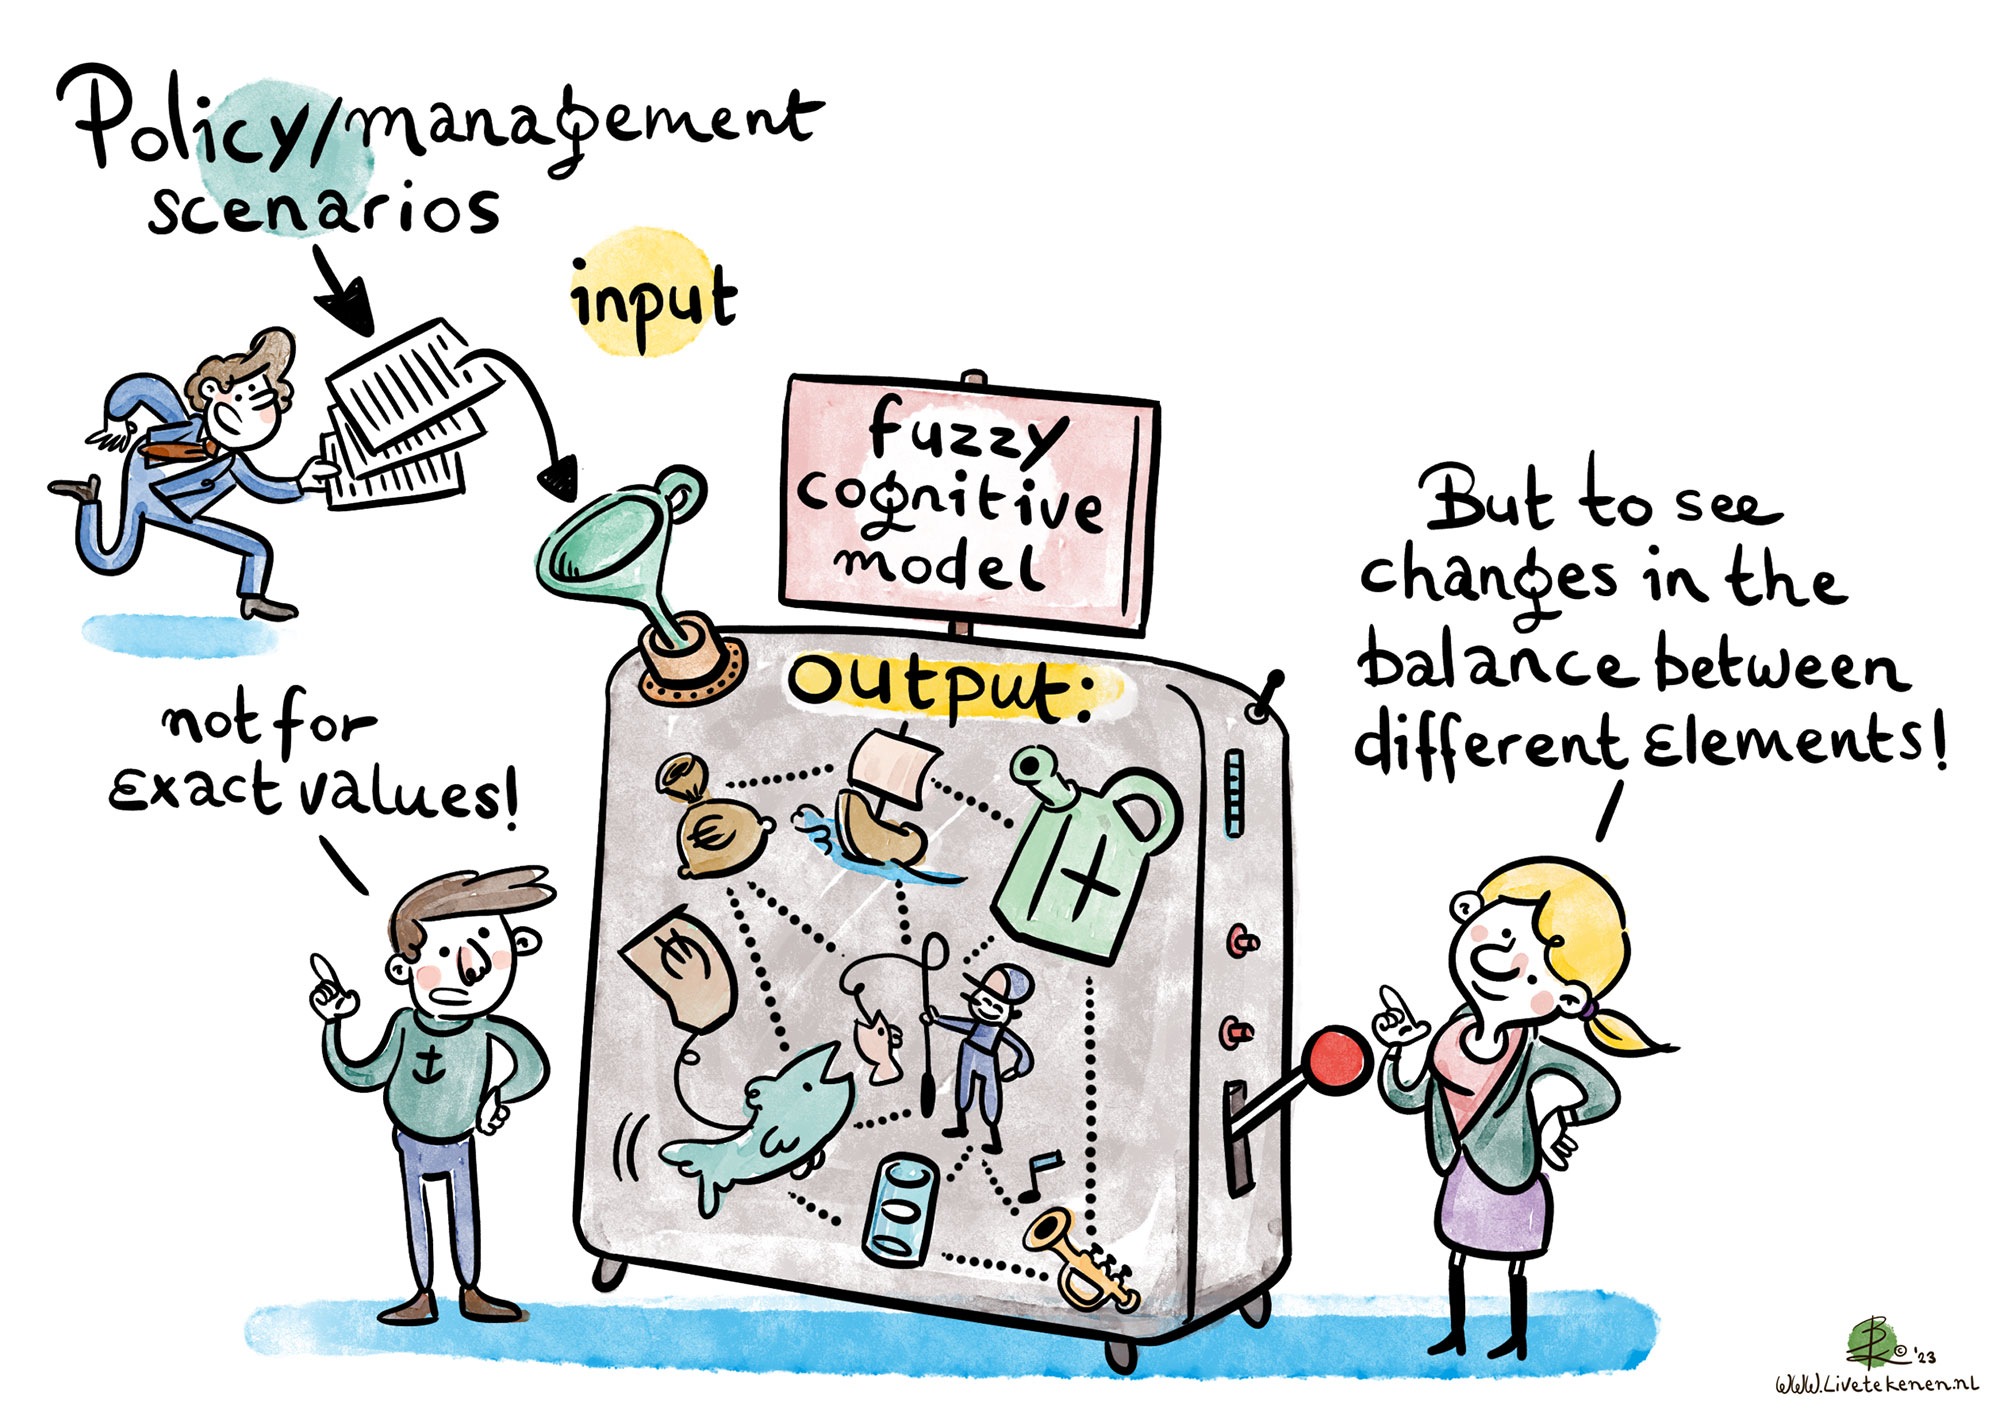 Policy/management
scenarios
input
fuzzy
cognitive
model
output:
not for
exact values!
But to see
changes in the
balance between
different elements!
€
€
BK © '23
www.livetekenen.nl